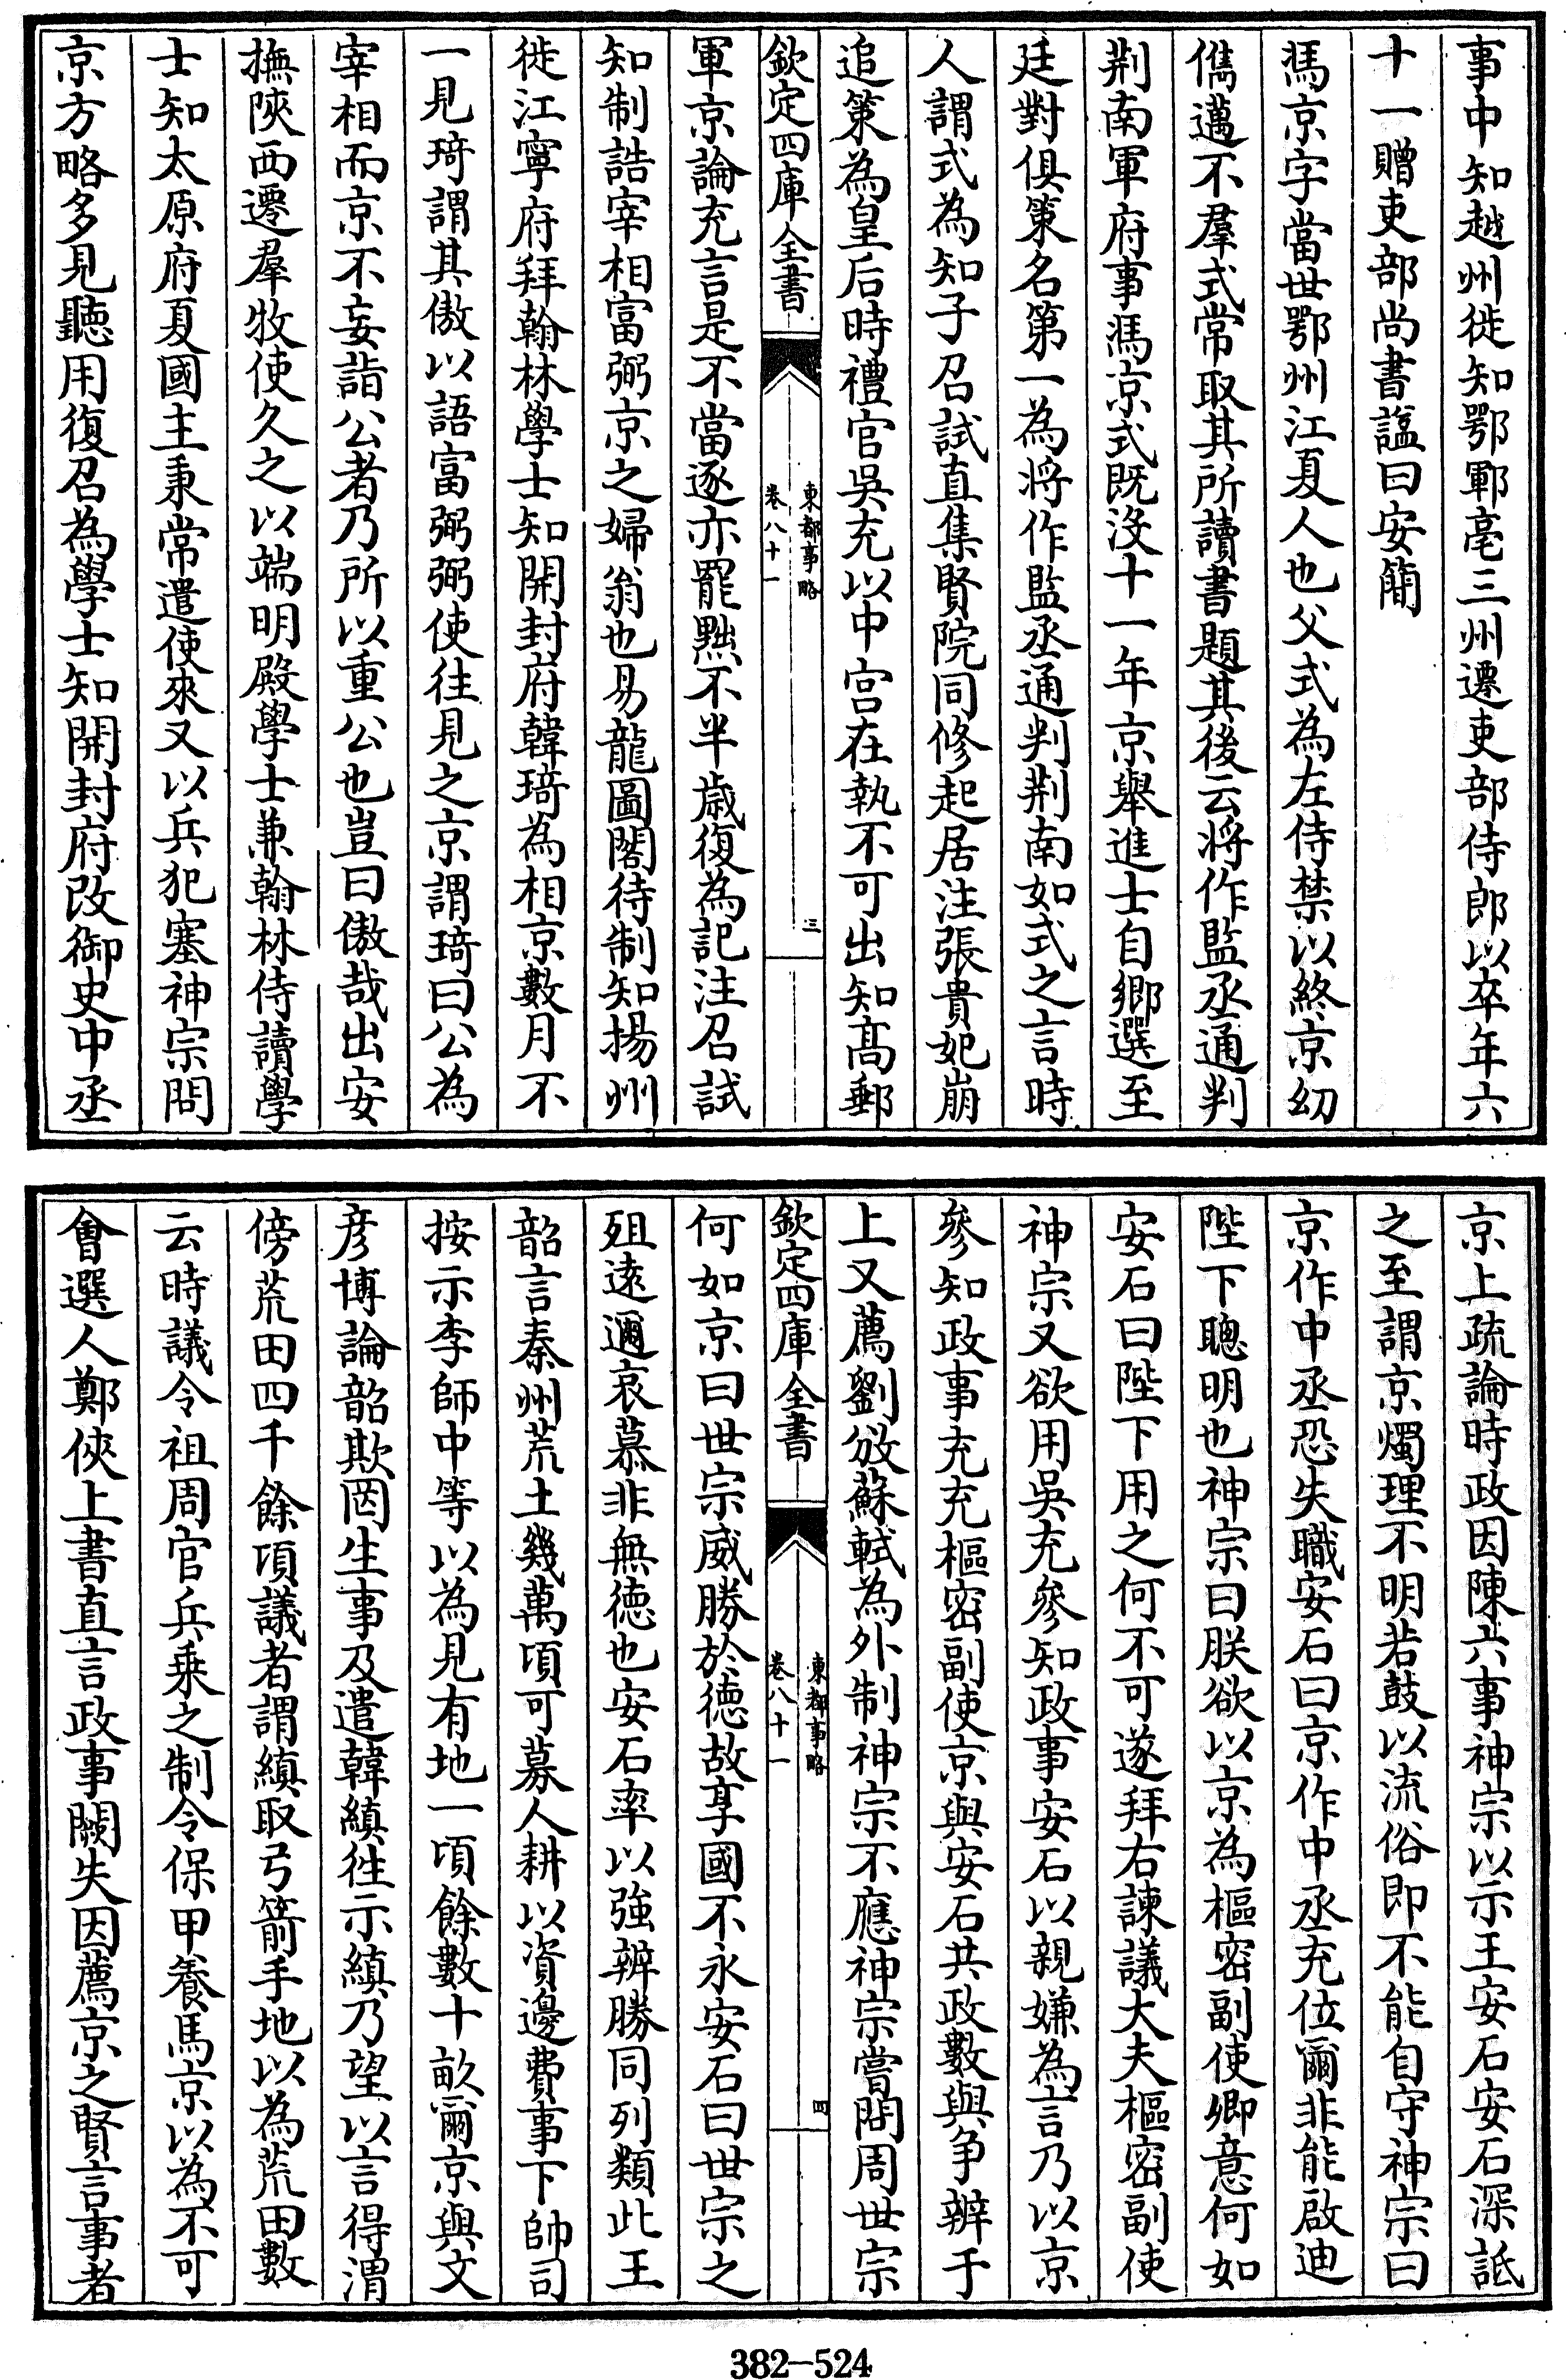 事中知越州徙知鄂鄆亳三州遷吏部侍郎以卒年六
十一贈吏部尚書諡曰安簡
馮京字當世鄂州江夏人也父式為左侍禁以終京幼
儁邁不羣式常取其所讀書題其後云將作監丞通判
荆南軍府事馮京式既沒十一年京舉進士自鄉選至
廷對俱策名第一為將作監丞通判荆南如式之言時
人謂式為知子召試直集賢院同修起居注張貴妃崩
追策為皇后時禮官吳充以中宫在執不可出知髙郵
欽定四庫全書
東都事略
卷八十一
三
軍京論充言是不當逐亦罷黜不半歲復為記注召試
知制誥宰相富弼京之婦翁也易龍圖閣待制知揚州
徙江寧府拜翰林學士知開封府韓琦為相京數月不
一見琦謂其傲以語富弼弼使往見之京謂琦曰公為
宰相而京不妄詣公者乃所以重公也豈曰傲哉出安
撫陜西遷羣牧使久之以端明殿學士兼翰林侍讀學
士知太原府夏國主秉常遣使來又以兵犯塞神宗問
京方略多見聽用復召為學士知開封府改御史中丞
京上疏論時政因陳六事神宗以示王安石安石深詆
之至謂京燭理不明若鼓以流俗即不能自守神宗曰
京作中丞恐失職安石曰京作中丞充位爾非能啟迪
陛下聰明也神宗曰朕欲以京為樞密副使卿意何如
安石曰陛下用之何不可遂拜右諫議大夫樞密副使
神宗又欲用吳充參知政事安石以親嫌為言乃以京
參知政事充充樞密副使京與安石共政數與争辨于
上又薦劉攽蘇軾為外制神宗不應神宗嘗問周世宗
欽定四庫全書
東都事略
卷八十一
四
何如京曰世宗威勝於徳故享國不永安石曰世宗之
殂逺邇哀慕非無徳也安石率以強辨勝同列類此王
韶言秦州荒土幾萬頃可募人耕以資邊費事下帥司
按示李師中等以為見有地一頃餘數十畝爾京與文
彦博論韶欺罔生事及遣韓縝徃示縝乃望以言得渭
傍荒田四千餘項議者謂縝取弓箭手地以為荒田數
云時議令祖周官兵乗之制令保甲養馬京以為不可
會選人鄭俠上書直言政事闕失因薦京之賢言事者
382-524